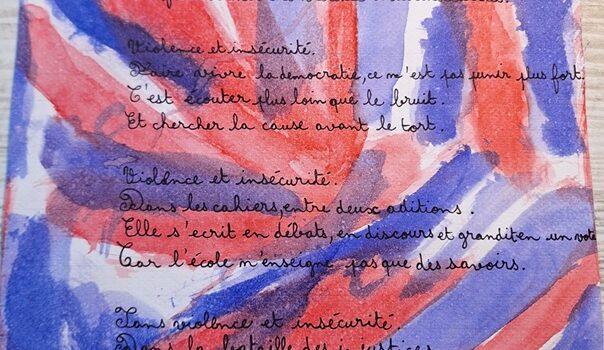 Violence et insécurité.
Faire vivre la democratie, ce n'est pas punir plus fort.
C'est écouter plus loin que le bruit.
Et chercher la cause avant le tort.
Violence et insécurité.
Dans les cahiers, entre deux aditions.
Elle s'ecrit en débats, en discours et grandit en un vote
Car l'école n'enseigne pas que des savoirs.
Sans violence et insécurité.
Dans la bataille des injustices